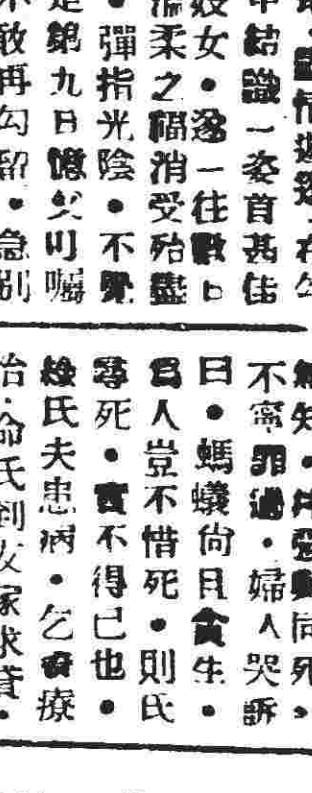 中結識一姿首甚佳
妓女・遂一往數日
溫柔之福消受殆盡
・彈指光陰・不覺
是第九日憶父叮囑
不敢再勾留・急別
同死・
不寧罪過・婦人哭訴
曰・螞蟻尚且貪生・
爲人豈不惜死・則氏
尋死・實不得已也・
緣氏夫患病・乞食療
治・命氏到女家求貸・